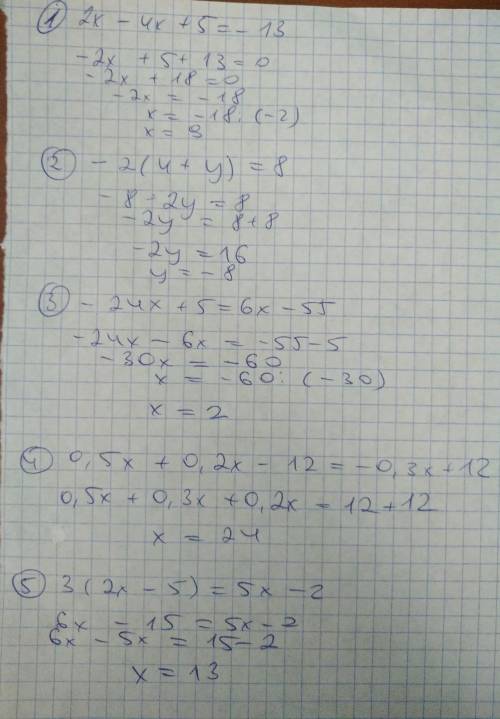 ① 2x - 4x + 5 = - 13
-2x + 5 + 13 = 0
-2x + 18 = 0
-2x = -18
x = -18 : (-2)
x = 9
② - 2(4 + y) = 8
- 8 - 2y = 8
-2y = 8+8
-2y = 16
y = -8
③ - 24x + 5 = 6x - 55
-24x - 6x = -55-5
-30x = -60
x = -60 : (-30)
x = 2
④ 0,5x + 0,2x - 12 = -0,3x+12
0,5x + 0,3x + 0,2x = 12 + 12
x = 24
⑤ 3(2x - 5) = 5x - 2
6x - 15 = 5x - 2
6x - 5x = 15 - 2
x = 13